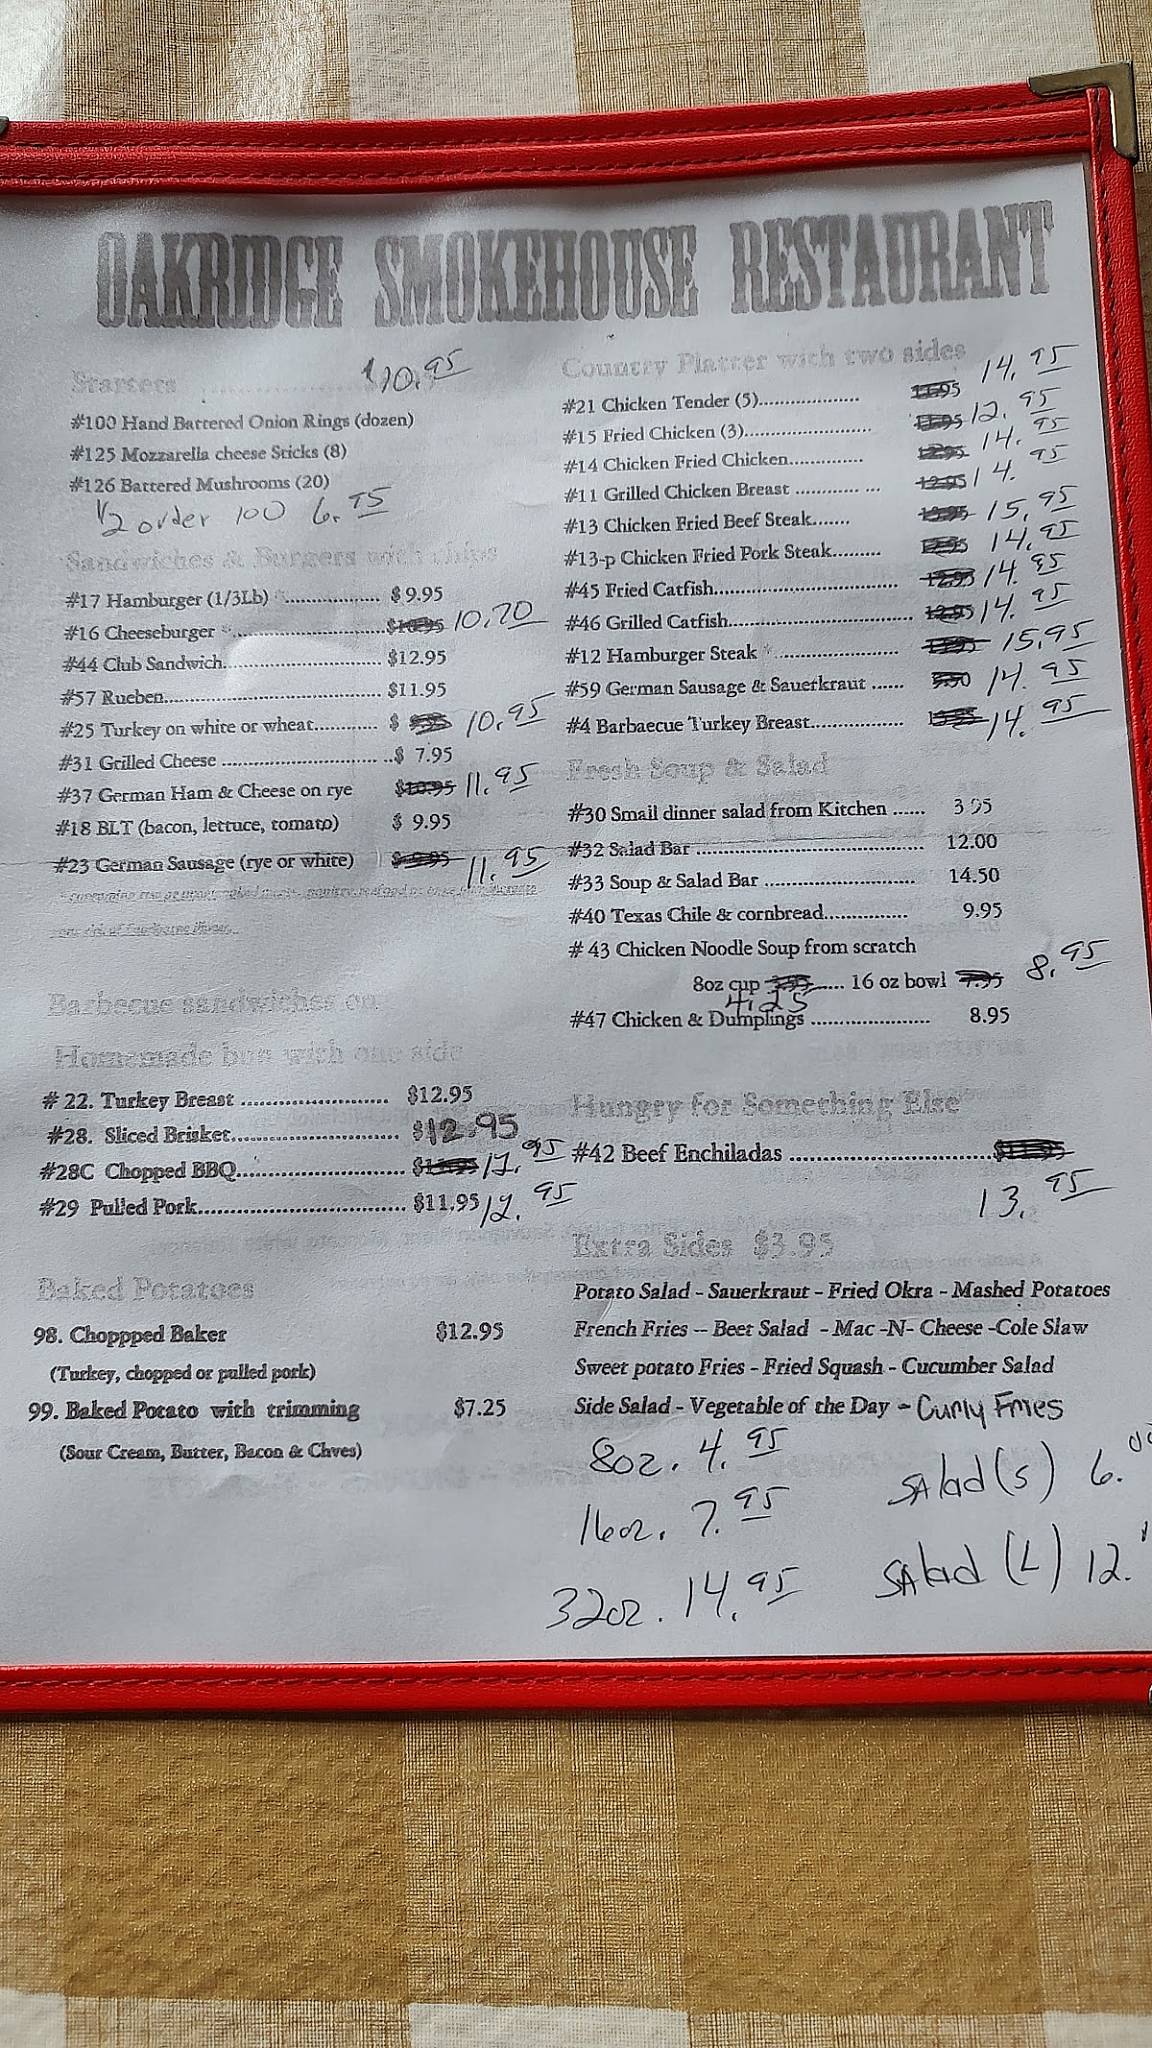 OAKRIDGE SMOKEHOUSE RESTAURANT
Starters .................... $10.95
#100 Hand Battered Onion Rings (dozen)
#125 Mozzarella cheese Sticks (8)
#126 Battered Mushrooms (20)
1/2 order 100 6.95
Sandwiches & Burgers with chips
#17 Hamburger (1/3Lb) * ................. $ 9.95
#16 Cheeseburger *........................... 10.70
#44 Club Sandwich............................ $12.95
#57 Rueben...................................... $11.95
#25 Turkey on white or wheat........... $ 10.95
#31 Grilled Cheese ............................ ..$ 7.95
#37 German Ham & Cheese on rye $10.95 11.95
#18 BLT (bacon, lettuce, tomato) $ 9.95
#23 German Sausage (rye or white) 11.95
Barbecue sandwiches on
Homemade bun with one side
# 22. Turkey Breast ........................ $12.95
#28. Sliced Brisket........................... $12.95
#28C Chopped BBQ........................... 12.95
#29 Pulled Pork................................. $11.95 12.95
Baked Potatoes
98. Choppped Baker $12.95
(Turkey, chopped or pulled pork)
99. Baked Potato with trimming $7.25
(Sour Cream, Butter, Bacon & Chves)
Country Platter with two sides
#21 Chicken Tender (5)................... 11.95 14.95
#15 Fried Chicken (3)........................ 11.95 12.95
#14 Chicken Fried Chicken............. 12.95 14.95
#11 Grilled Chicken Breast ............ ... 12.95 14.95
#13 Chicken Fried Beef Steak....... 15.95
#13-p Chicken Fried Pork Steak......... 12.95 14.95
#45 Fried Catfish............................... 12.95 14.95
#46 Grilled Catfish............................... 12.95 14.95
#12 Hamburger Steak * .................... 15.95
#59 German Sausage & Sauerkraut ...... 14.95
#4 Barbaecue Turkey Breast................ 14.95
Fresh Soup & Salad
#30 Small dinner salad from Kitchen ...... 3.95
#32 Salad Bar ....................................... 12.00
#33 Soup & Salad Bar .......................... 14.50
#40 Texas Chile & cornbread............... 9.95
# 43 Chicken Noodle Soup from scratch
8oz cup 3.95 ..... 16 oz bowl 7.95 8.95
4.25
#47 Chicken & Dumplings ..................... 8.95
Hungry for Something Else
#42 Beef Enchiladas ....................................
13.95
Extra Sides $3.95
Potato Salad - Sauerkraut - Fried Okra - Mashed Potatoes
French Fries -- Beet Salad - Mac -N- Cheese -Cole Slaw
Sweet potato Fries - Fried Squash - Cucumber Salad
Side Salad - Vegetable of the Day - Curly Fries
8oz. 4.95
16oz. 7.95
32oz. 14.95
SAlad (S) 6.00
SAlad (L) 12.